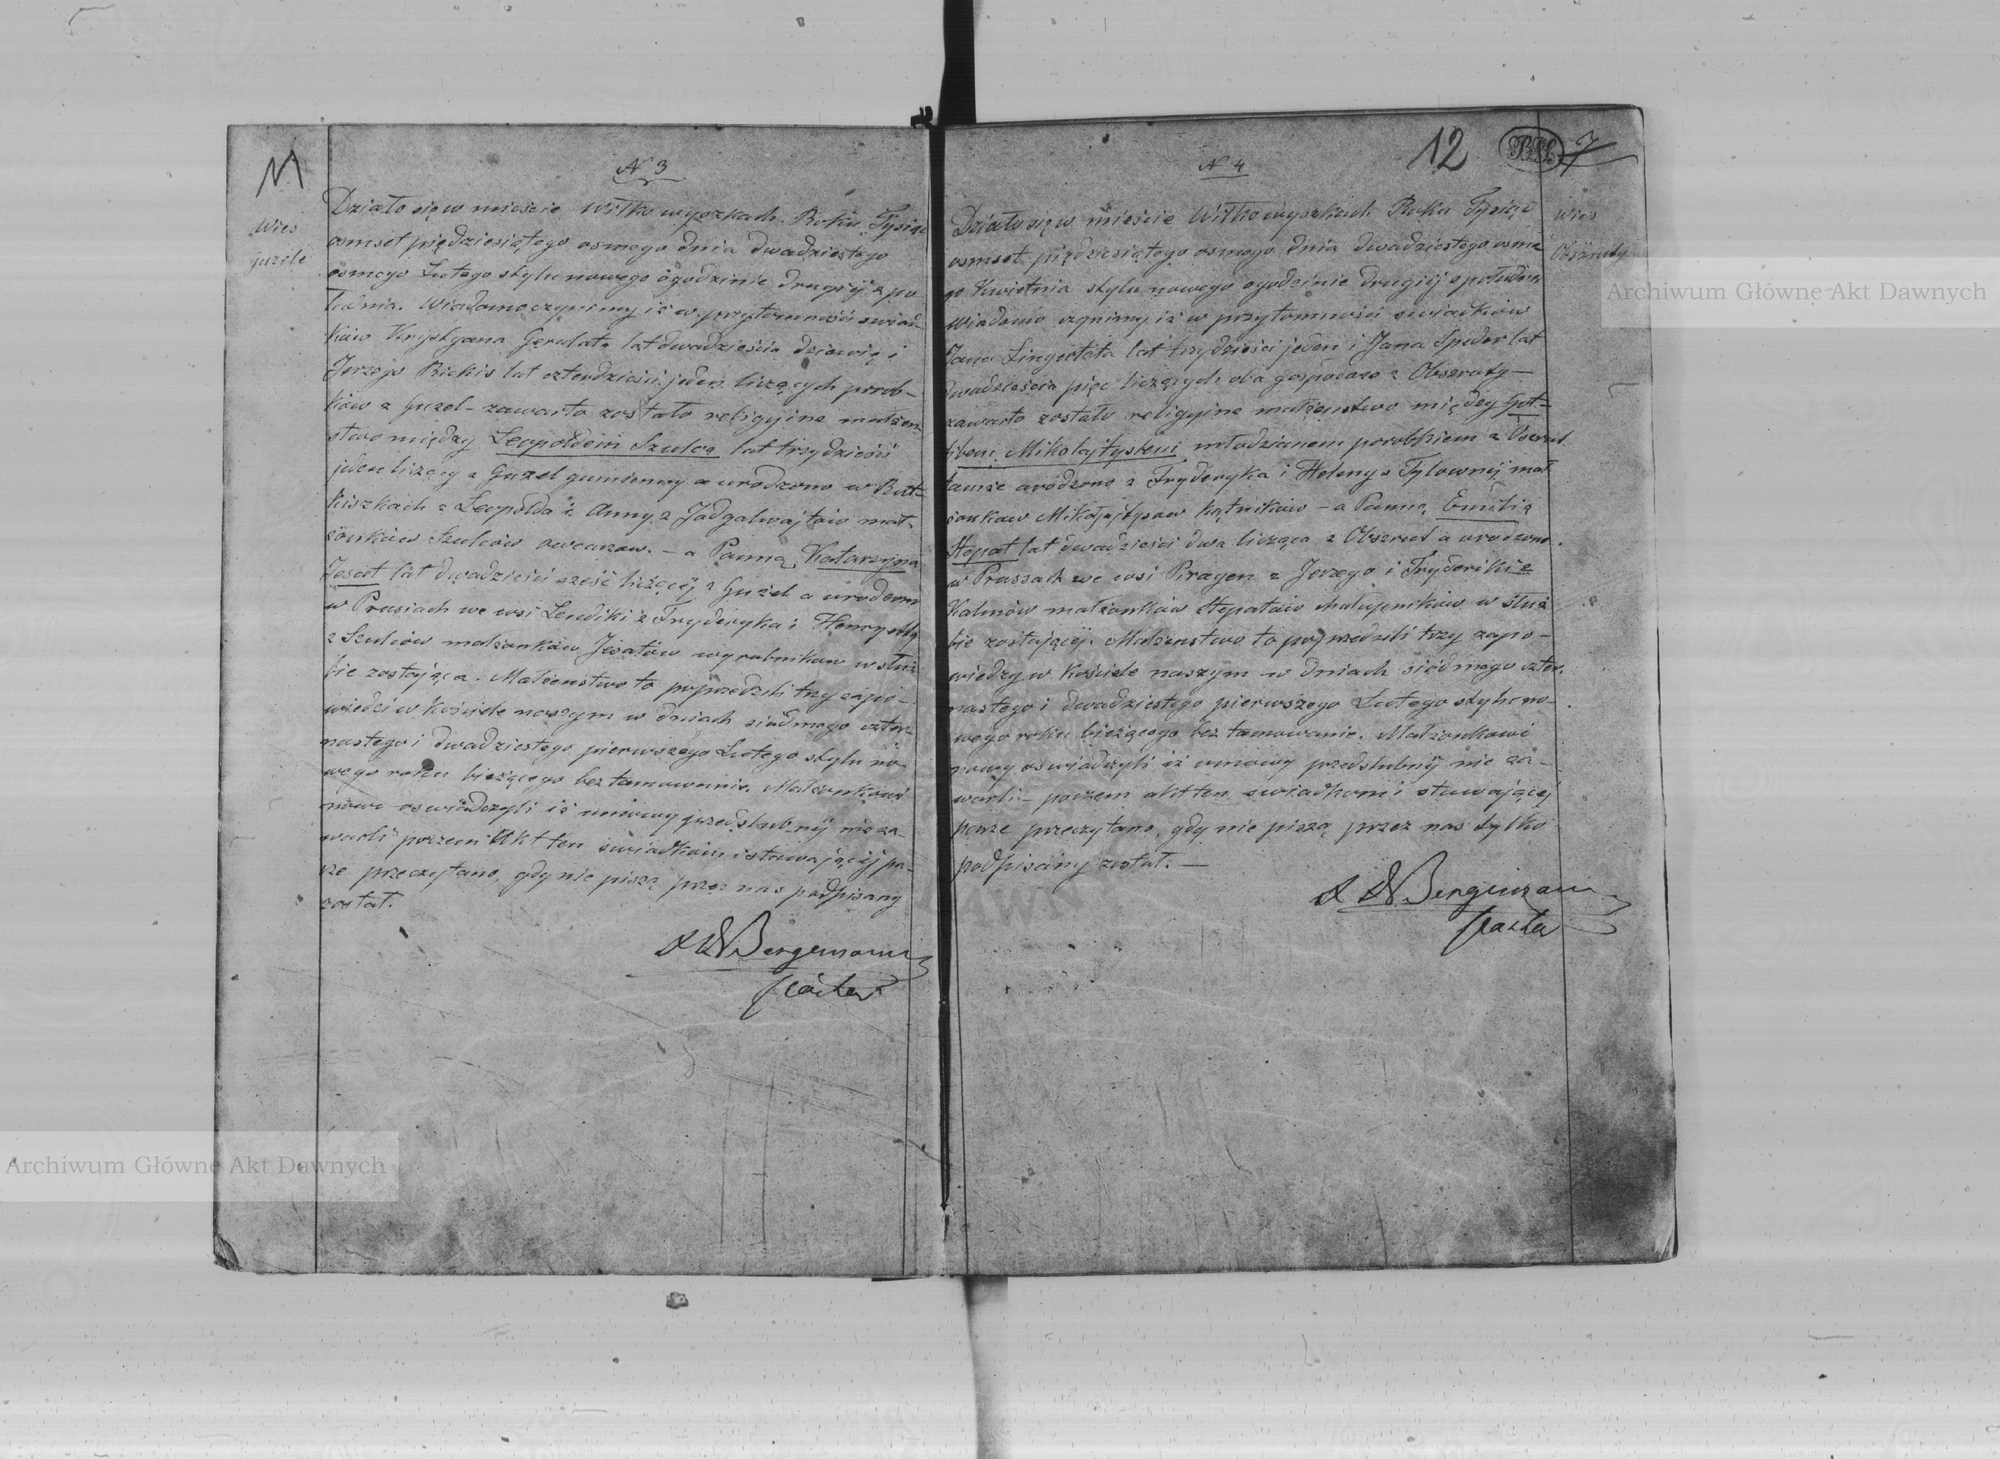 M
N 3
Wies
guzele
Działo się w mieście Wiłkowyszkach Roku Tysiąc
osmset pięćdziesiątego osmego dnia dwadziestego
osmego Lutego stylu nowego o godzinie drugiej z po
łudnia. Wiadomo czynimy iż w przytomności świad-
ków Krystyana Gerulata lat dwadzieścia dziewięć i
Jerzego Rickis lat czterdzieści jeden liczących parob-
ków z Guzel – zawarto zostało religijne małżeń-
stwo między Leopoldem Szulcą lat trzydzieści
jeden liczący z Guzel gumienny a urodzono w
kiszkach z Leopolda i Anny z Jodgalwajtów mał-
żonków Szulców owczarzow. – a Panną Katarzyną
Jesat lat dwadzieści sześć liczącej z Guzel a urodzono
w Prusiach we wsi Lendiki z Fryderyka i Henryetty
z Szulców małżonków Jesatów wyrobnikow w służ
bie zostająca. Małżenstwo to poprzedzili trzy zapo-
wiedzi w Kościele naszym w dniach siódmego czter-
nastego i dwadziestego pierwszego Lutego stylu no-
wego roku bieżącego bez tamowanie. Małżonkowi
nowi oświadczyli iż umowy przedslubnij nie za-
warli poczem Akt ten świadkom i stawającej pa-
rze przeczytano, gdy nie piszą przez nas podpisany
został.
Bergemann
Pastor
N 4
12
7
Wies
Obszruty
Działo się w mieście Wiłkowyszkach Roku Tysiąc
osmset pięćdziesiątego osmego dnia dwadziestego osme
go Kwietnia stylu nowego o godzinie drugiej z południa
Wiadomo czynimy iż w przytomności świadków
Jana Lingertata lat trzydzieści jeden i Jana Speder lat
dwadzieścia pięć liczących oba gospodarze z Obszruty –
zawarto zostało religijne małżenstwo między Got-
libem Mikołajtysem młodzianem parobkiem z
tamże urodzono z Fryderyka i Heleny z Tylownej mał
żonkow Mikołajtysow kątników – a Panną Emilią
Hopat lat dwadzieści dwa licząca z Obszrut a urodzono
w Prusach we wsi Pragen z Jerzego i Fryderikie
Kalmów małżonków Hopatów chałupników w służ
bie zostającej. Małżenstwo to poprzedzili trzy zapo-
wiedzy w Kościele naszym w dniach siódmego czter-
nastego i dwadziestego pierwszego Lutego stylu no-
wego roku bieżącego bez tamowanie. Małżonkowi
nowy oświadczyli iż umowy przedslubnij nie za-
warli – poczem akt ten świadkom i stawającej
parze przeczytano, gdy nie piszą przez nas tylko
podpisany został. –
Bergemann
Pastor
Archiwum Główne Akt Dawnych
Archiwum Główne Akt Dawnych